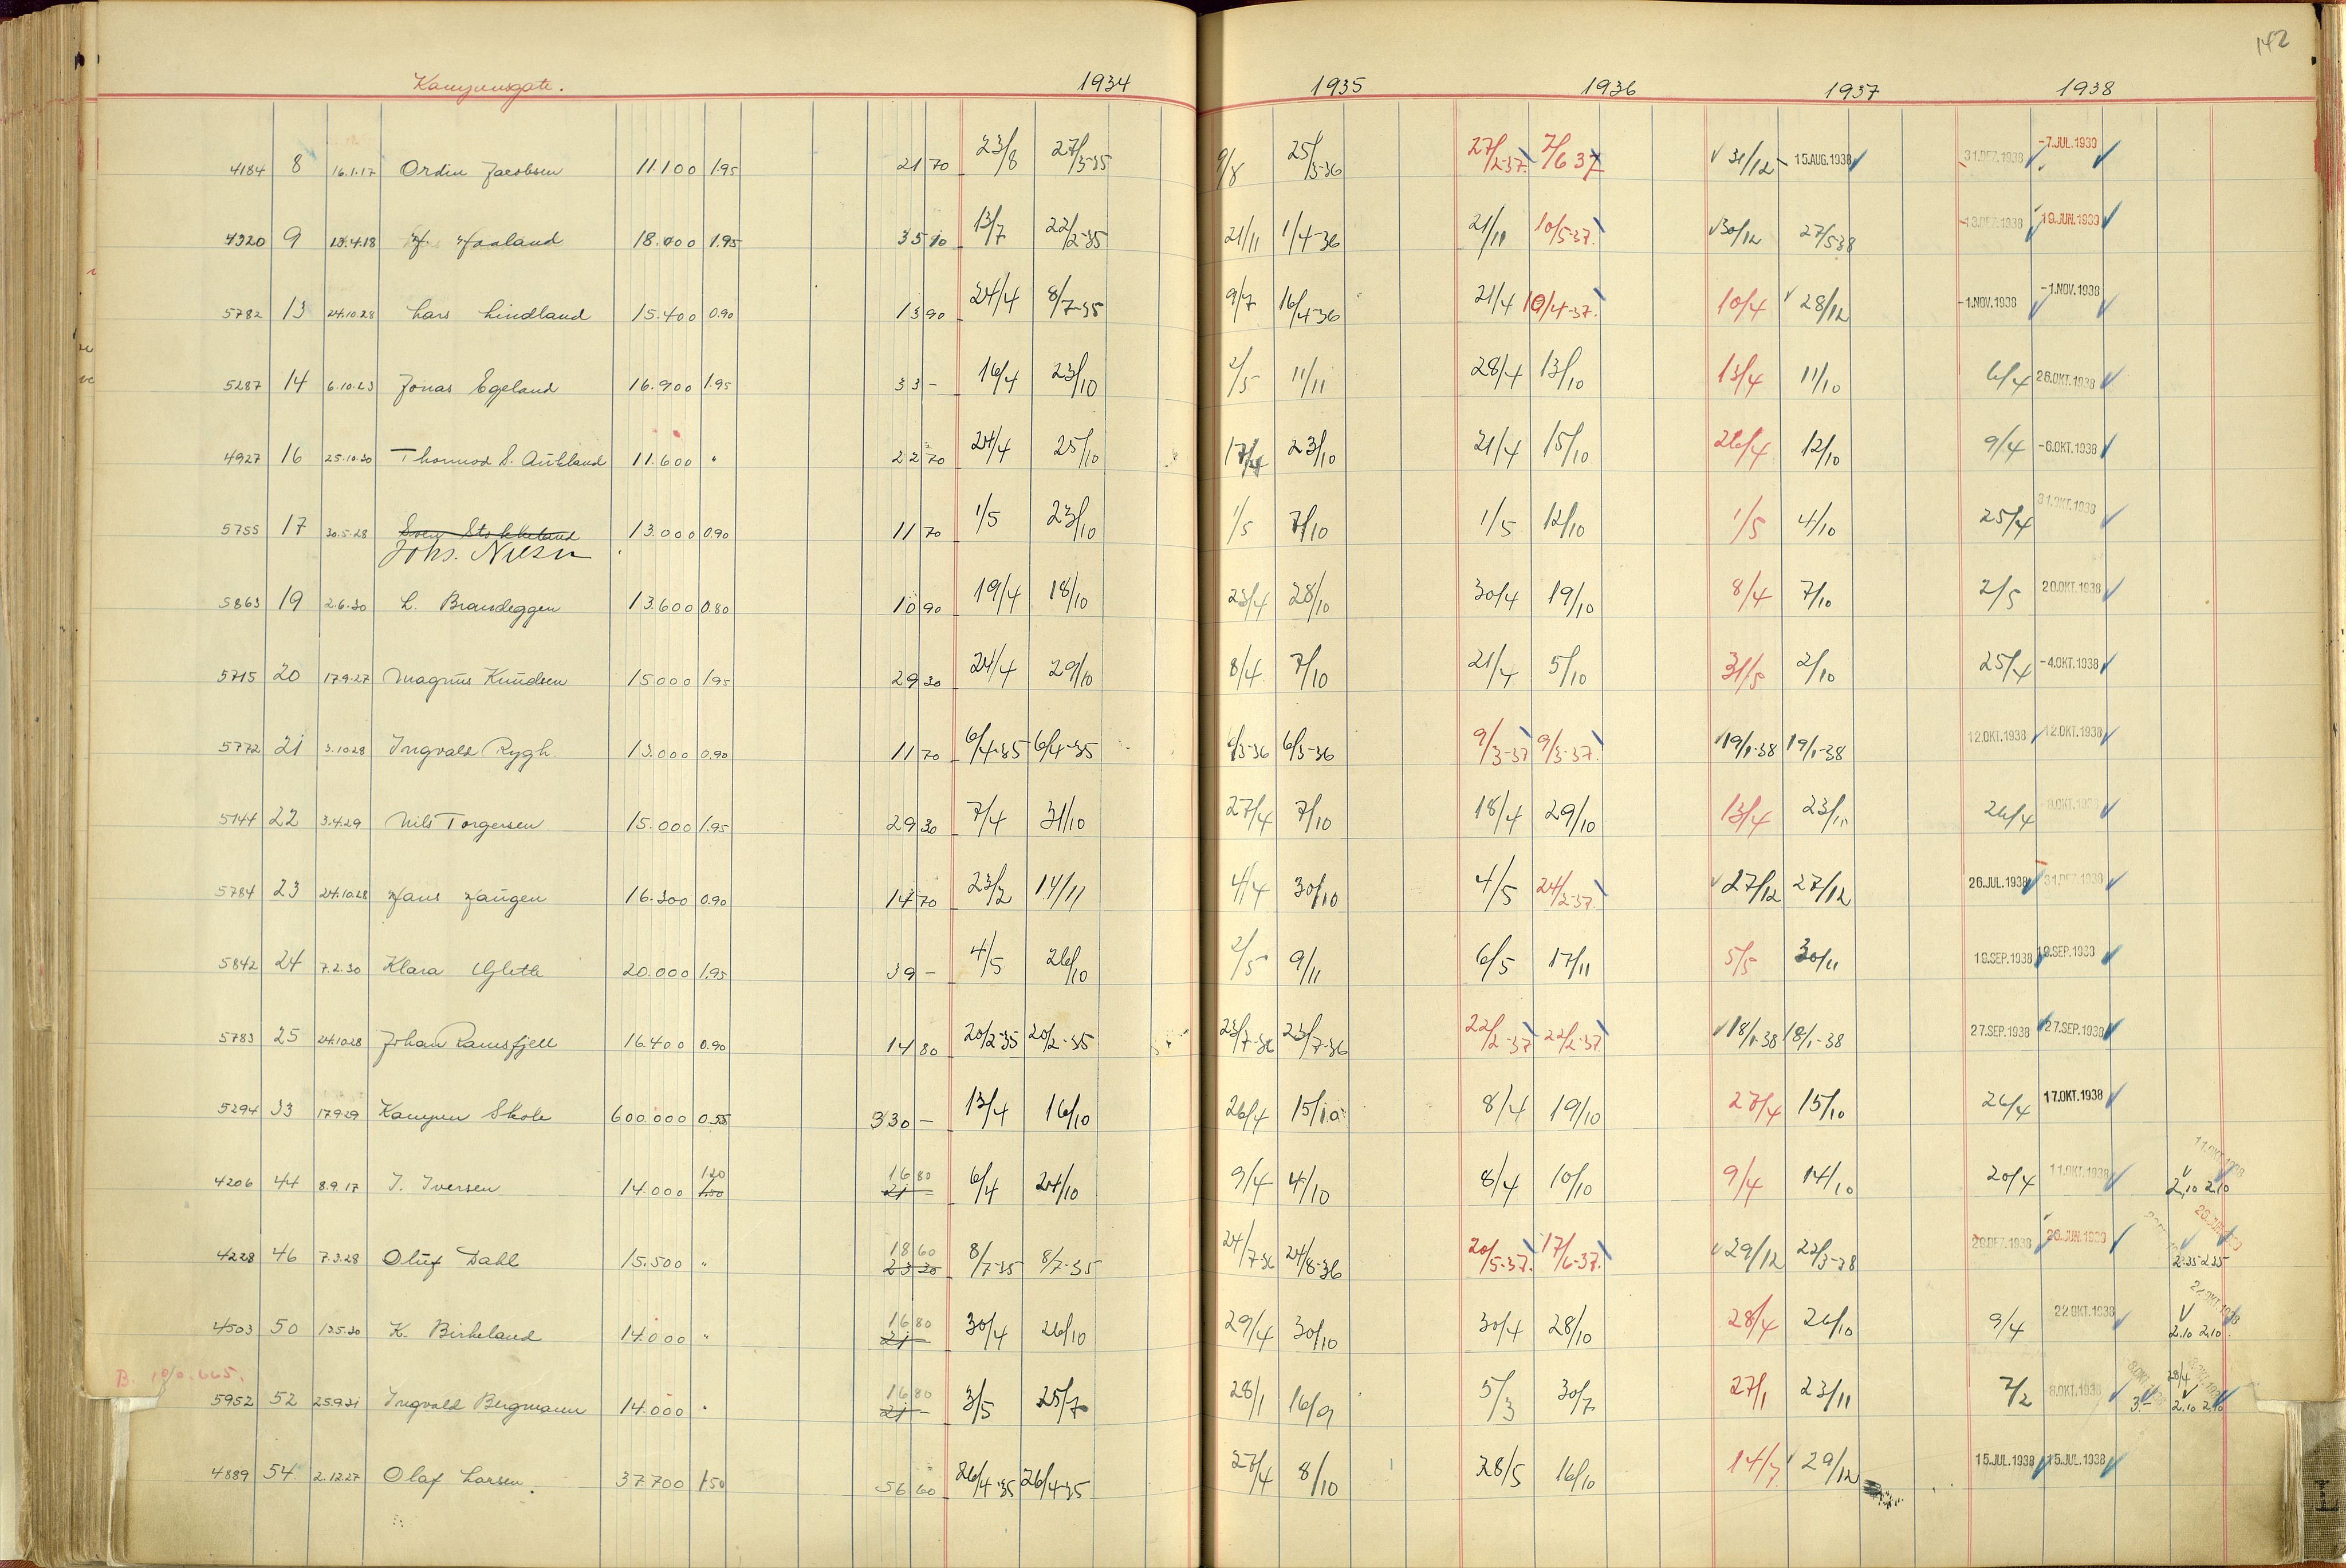 142
Kampensgate. 1934 1935 1936 1937 1938
4184 8 16.1.17 Ordin Jacobsen 11.100 1.95 21 70 23/8 27/3-35 9/8 25/3-36 27/2-37. 7/6 37 31/12 15.AUG.1938 31.DEZ.1938 -7.JUL.1939
4320 9 19.4.18 H. Haaland 18.000 1.95 35 10 13/7 22/2-35 21/11 1/4-36 21/11 10/5-37. 30/12 27/5-38 19.JUN.1939
5782 13 24.10.28 Lars Lindland 15.400 0.90 13 90 24/4 8/7-35 9/7 16/4-36 21/4 19/4-37. 10/4 28/12 -1.NOV.1938 -1.NOV.1938
5287 14 6.10.23 Jonas Egeland 16.900 1.95 33 - 16/4 23/10 2/5 11/11 28/4 13/10 13/4 11/10 6/4 26.OKT.1938
4927 16 25.10.30 Thormod S. Aukland 11.600 " 22 70 24/4 25/10 17/4 23/10 21/4 15/10 26/4 12/10 9/4 -6.OKT.1938
5755 17 30.5.28 Sven Stokkeland 13.000 0.90 11 70 1/5 23/10 1/5 7/10 1/5 12/10 1/5 4/10 25/4 31.OKT.1938
Johs. Nilsen
5863 19 2.6.30 L. Brandeggen 13.600 0.80 10 90 19/4 18/10 23/4 28/10 30/4 19/10 8/4 7/10 2/5 20.OKT.1938
5715 20 17.9.27 Magnus Knudsen 15.000 1.95 29 30 24/4 29/10 8/4 7/10 21/4 5/10 31/5 2/10 25/4 -4.OKT.1938
5772 21 3.10.28 Ingvald Rygh 13.000 0.90 11 70 6/4-35 6/4-35 6/3-36 6/3-36 9/3-37 9/3-37. 19/1-38 19/1-38 12.OKT.1938 12.OKT.1938
5144 22 3.4.29 Nils Torgersen 15.000 1.95 29 30 7/4 31/10 27/4 7/10 18/4 29/10 13/4 23/11 26/4 8.OKT.1938
5784 23 24.10.28 Hans Haugen 16.300 0.90 14 70 23/2 14/11 4/4 30/10 4/5 24/2-37. 27/12 27/12 26.JUL.1938 31.DEZ.1938
5842 24 7.2.30 Klara Glette 20.000 1.95 39 - 4/5 26/10 2/5 9/11 6/5 17/11 5/5 30/11 19.SEP.1938 19.SEP.1938
5783 25 24.10.28 Johan Ramsfjell 16.400 0.90 14 80 20/2-35 20/2-35 23/7-36 23/7-36 22/2-37 22/2-37 18/1-38 18/1-38 27.SEP.1938 27.SEP.1938
5294 33 17.9.29 Kampen Skole 600.000 0.55 330 - 13/4 16/10 26/4 15/10 8/4 19/10 27/4 15/10 26/4 17.OKT.1938
4206 44 8.9.17 I. Iversen 14.000 1.20 1.50 16 80 21 - 6/4 24/10 9/4 4/10 8/4 10/10 9/4 14/10 20/4 11.OKT.1938 11.OKT.1938 2.10 2.10
4228 46 7.3.28 Oluf Dahl 15.500 " 18 60 23 30 8/7-35 8/7-35 24/7-36 24/8-36 20/5-37. 17/6-37. 29/12 22/3-38 29.DEZ.1938 26.JUN.1939 2.35 2.35
4503 50 12.5.20 K. Birkeland 14.000 " 16 80 21 - 30/4 26/10 29/4 30/10 30/4 28/10 28/4 26/10 9/4 22.OKT.1938 22.OKT.1938 2.10 2.10.
B. 10/0.665.
5952 52 25.9.31 Ingvald Bergmann 14.000 " 16 80 21 - 3/5 25/7 28/1 16/9 5/3 30/7 27/1 23/11 7/2 8.OKT.1938 3.- 28/4 2.10 2.10
4889 54 2.12.27 Olaf Larsen. 37.700 1.50 56 60 26/4-35 26/4-35 27/4 8/10 28/5 16/10 14/7 29/12 15.JUL.1938 15.JUL.1938